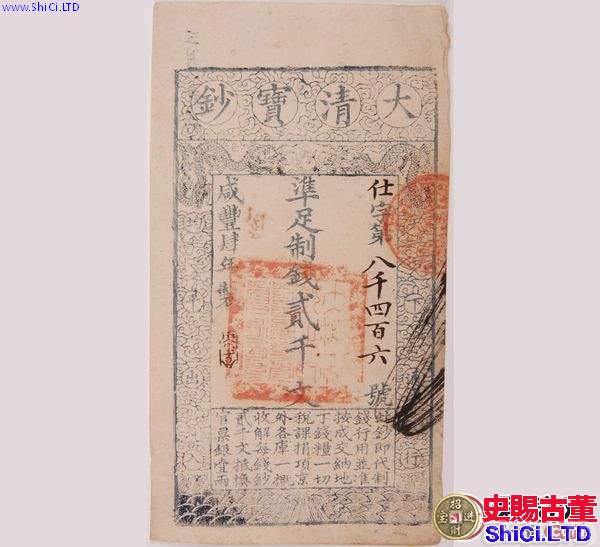 www.ShiCi.LTD
大清寶鈔
天下通行
仕字第八千四百六號
準足制錢貳千文
咸豐肆年
均平出入
此鈔即代制
錢行用並准
按成交納地
丁錢糧一切
稅課捐項京
外各庫一概
收解每錢鈔
貳千文抵換
官票銀壹兩
招財进宝
史賜古董
ShiCi.LTD